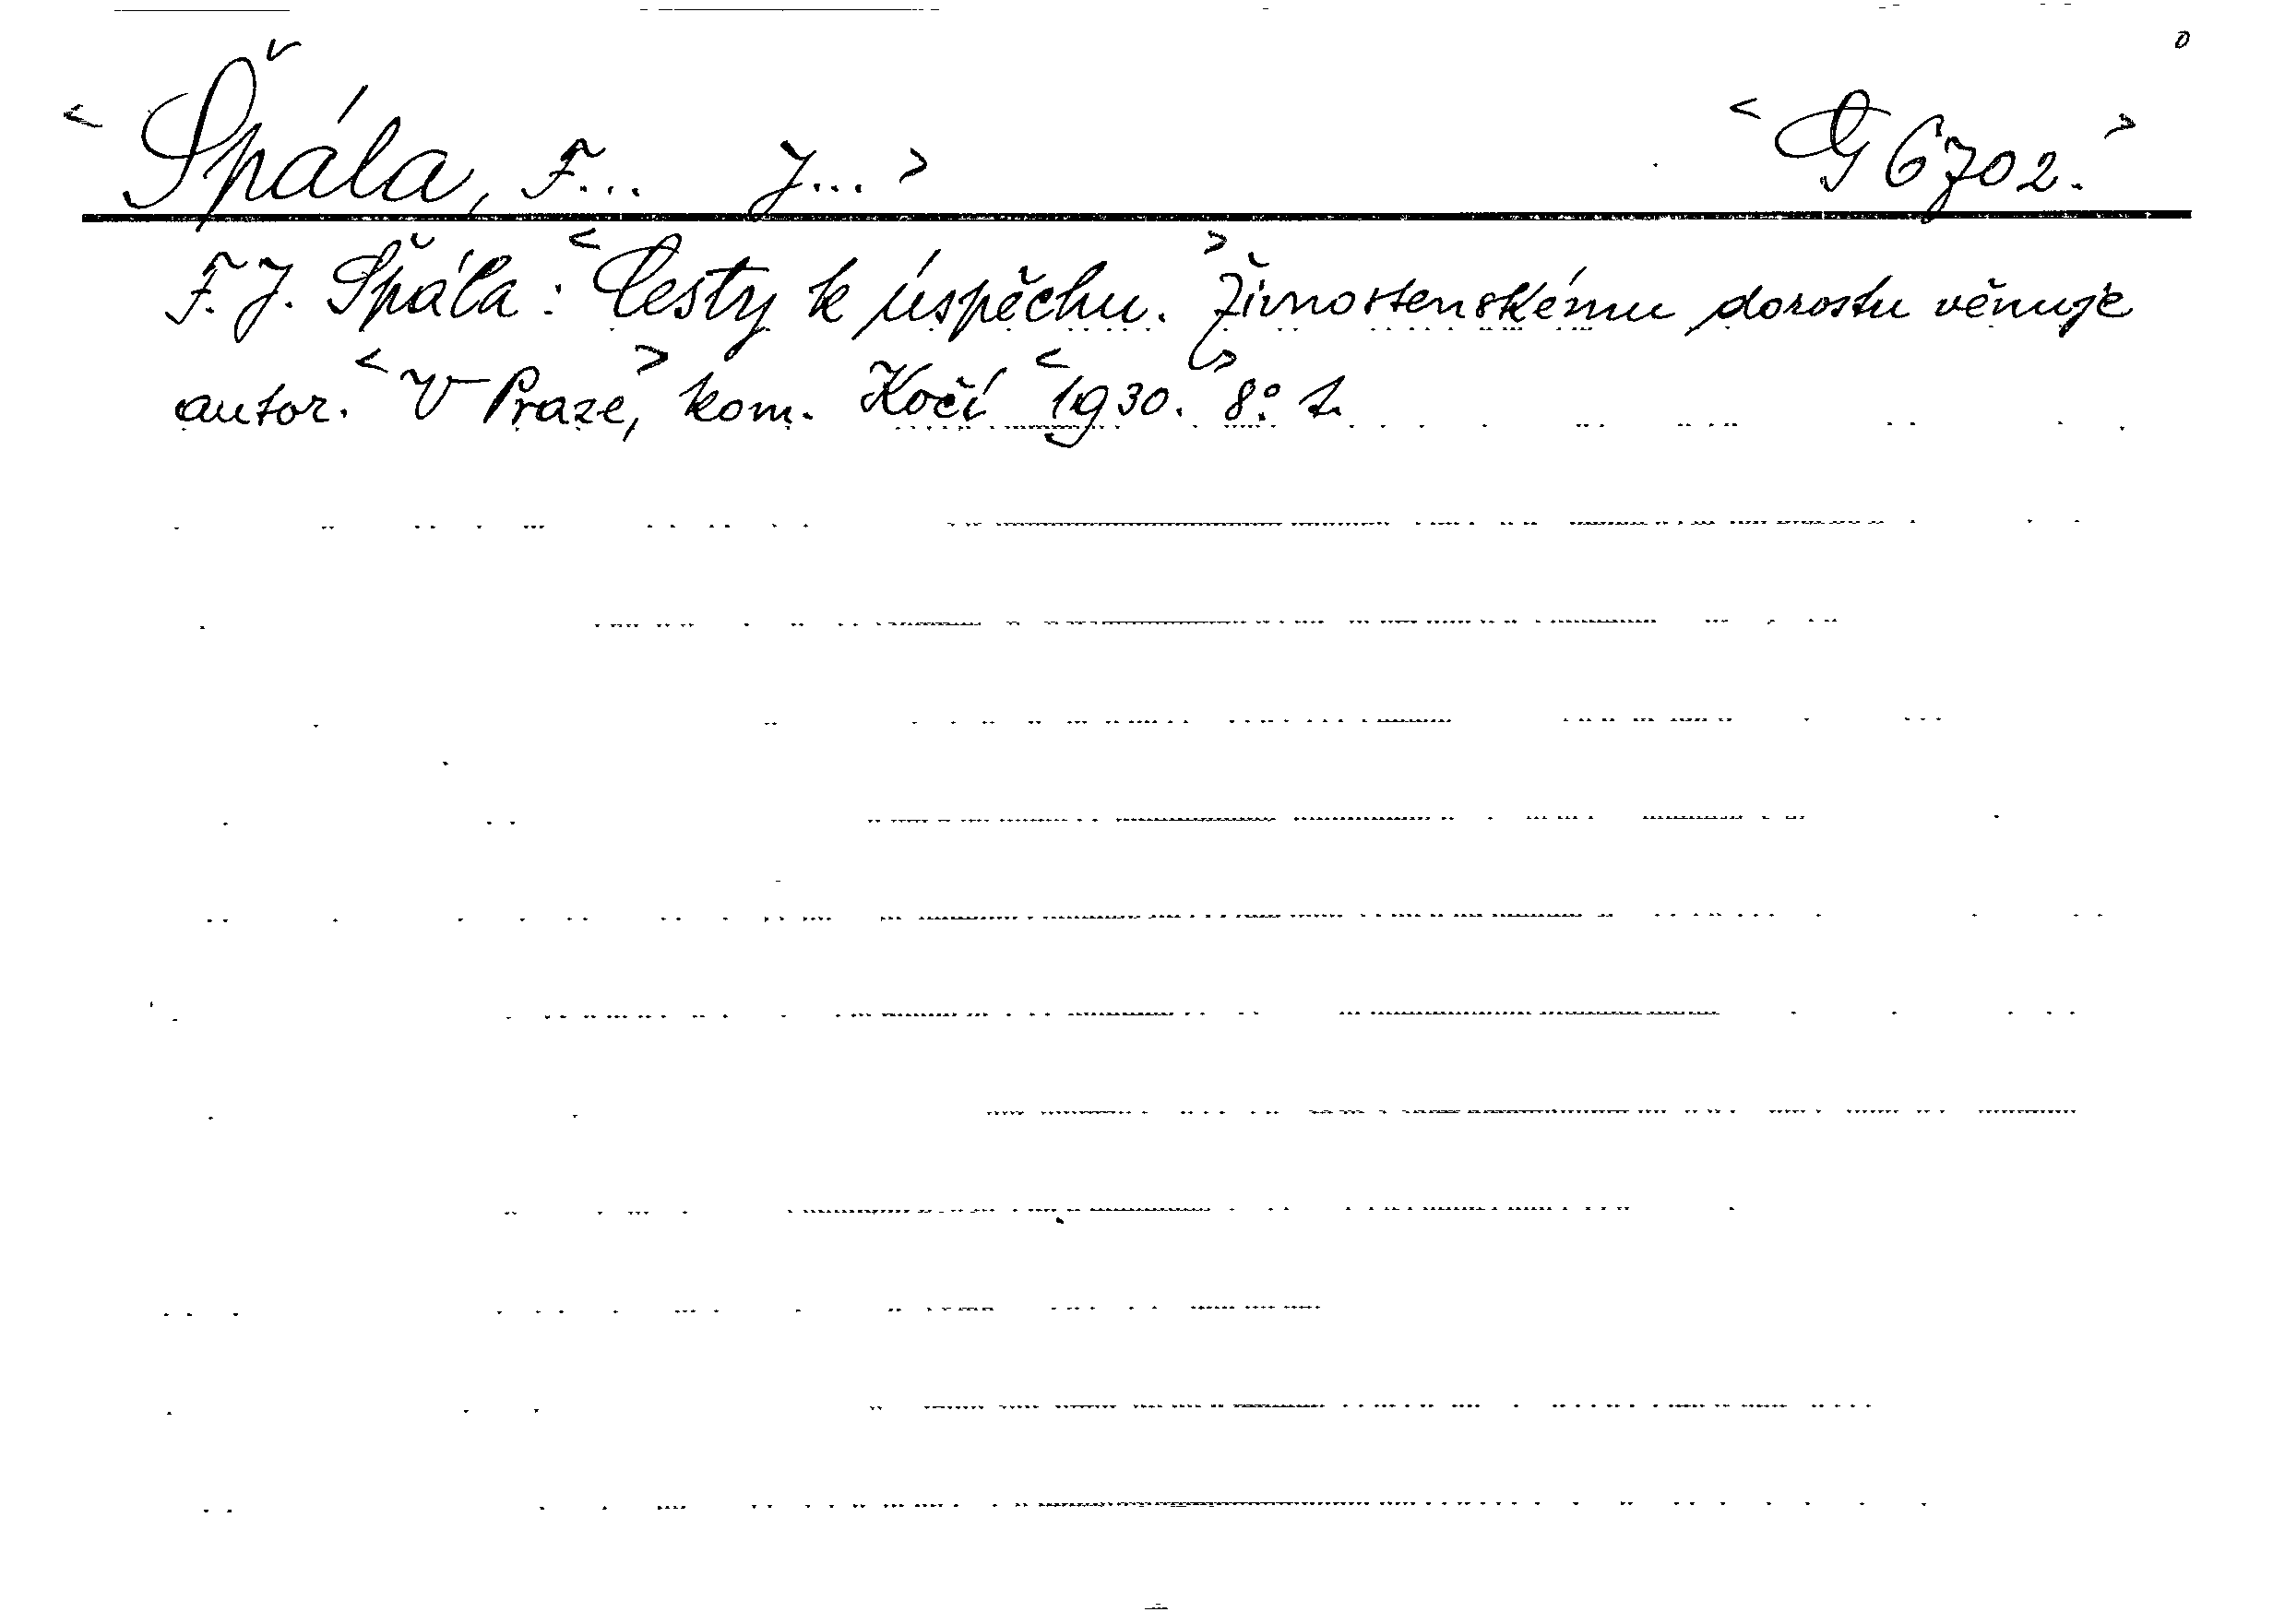 < Špála, F... J... > < G 6702. >
F. J. Špála: < Cesty k úspěchu. > Živnostenskému dorostu věnuje
autor. < V Praze, > kom. Kočí < 1930. > 8°.